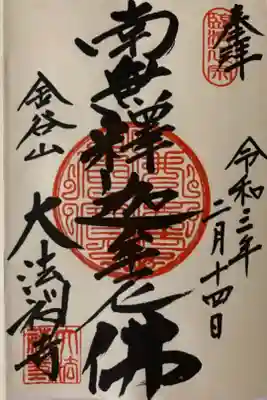 奉拝
令和三年
二月十四日
南無釋迦牟尼佛
金谷山
大法禅寺